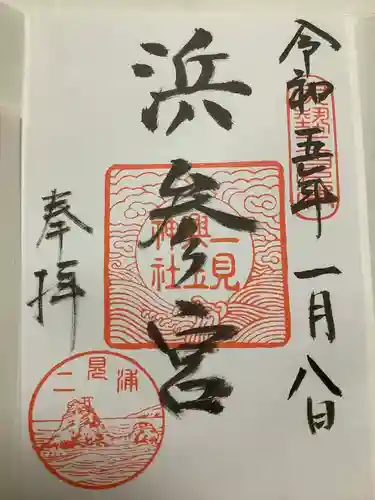 令和五年一月八日
浜参宮
奉拝
二見興玉神社
二見浦